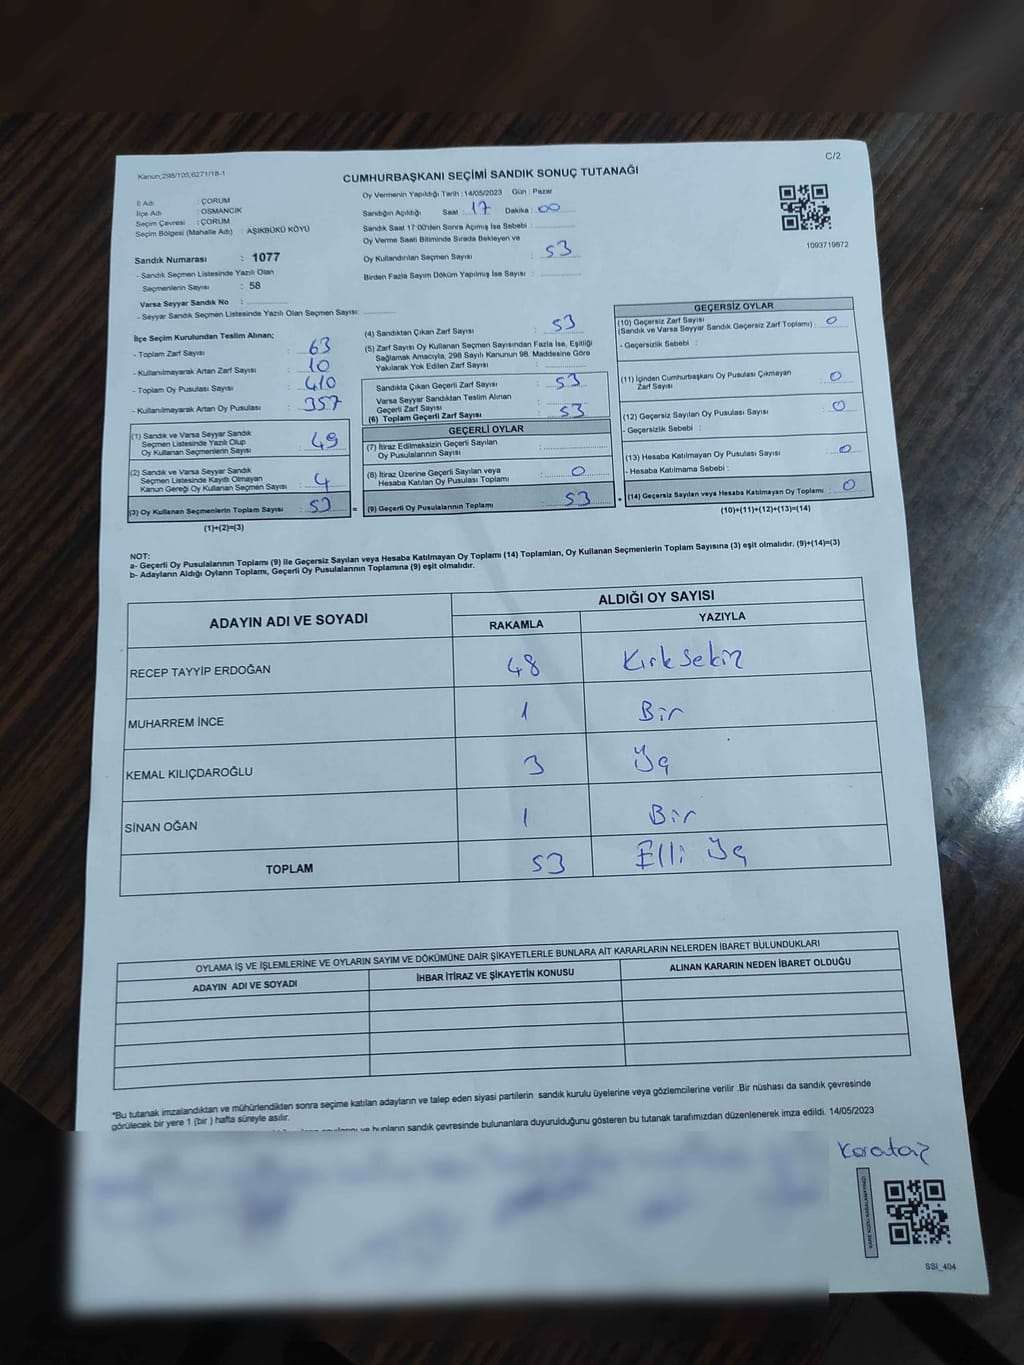 C/2
Kanun;298/105,6271/18-1
CUMHURBAŞKANI SEÇİMİ SANDIK SONUÇ TUTANAĞI
İl Adı : ÇORUM
İlçe Adı : OSMANCIK
Seçim Çevresi : ÇORUM
Seçim Bölgesi (Mahalle Adı) : AŞIKBÜKÜ KÖYÜ
Sandık Numarası : 1077
- Sandık Seçmen Listesinde Yazılı Olan
Seçmenlerin Sayısı : 58
Varsa Seyyar Sandık No :
- Seyyar Sandık Seçmen Listesinde Yazılı Olan Seçmen Sayısı:
Oy Vermenin Yapıldığı Tarih : 14/05/2023 Gün : Pazar
Sandığın Açıldığı Saat : 17 Dakika : 00
Sandık Saat 17:00'den Sonra Açımış İse Sebebi :
Oy Verme Saati Bitiminde Sırada Bekleyen ve
Oy Kullandırılan Seçmen Sayısı : 53
Birden Fazla Sayım Döküm Yapılmış İse Sayısı :
1093719872
İlçe Seçim Kurulundan Teslim Alınan;
- Toplam Zarf Sayısı : 63
- Kullanılmayarak Artan Zarf Sayısı : 10
- Toplam Oy Pusulası Sayısı : 410
- Kullanılmayarak Artan Oy Pusulası : 357
(1) Sandık ve Varsa Seyyar Sandık
Seçmen Listesinde Yazılı Olup
Oy Kullanan Seçmenlerin Sayısı : 49
(2) Sandık ve Varsa Seyyar Sandık
Seçmen Listesinde Kayıtlı Olmayan
Kanun Gereği Oy Kullanan Seçmen Sayısı : 4
(3) Oy Kullanan Seçmenlerin Toplam Sayısı : 53
(1)+(2)=(3)
=
(4) Sandıktan Çıkan Zarf Sayısı : 53
(5) Zarf Sayısı Oy Kullanan Seçmen Sayısından Fazla İse, Eşitliği
Sağlamak Amacıyla, 298 Sayılı Kanunun 98. Maddesine Göre
Yakılarak Yok Edilen Zarf Sayısı :
Sandıkta Çıkan Geçerli Zarf Sayısı : 53
Varsa Seyyar Sandıktan Teslim Alınan
Geçerli Zarf Sayısı :
(6) Toplam Geçerli Zarf Sayısı : 53
GEÇERLİ OYLAR
(7) İtiraz Edilmeksizin Geçerli Sayılan
Oy Pusulalarının Sayısı :
(8) İtiraz Üzerine Geçerli Sayılan veya
Hesaba Katılan Oy Pusulası Toplamı : 0
(9) Geçerli Oy Pusulalarının Toplamı : 53
+
GEÇERSİZ OYLAR
(10) Geçersiz Zarf Sayısı
(Sandık ve Varsa Seyyar Sandık Geçersiz Zarf Toplamı) : 0
- Geçersizlik Sebebi :
(11) İçinden Cumhurbaşkanı Oy Pusulası Çıkmayan
Zarf Sayısı : 0
(12) Geçersiz Sayılan Oy Pusulası Sayısı : 0
- Geçersizlik Sebebi :
(13) Hesaba Katılmayan Oy Pusulası Sayısı : 0
- Hesaba Katılmama Sebebi :
(14) Geçersiz Sayılan veya Hesaba Katılmayan Oy Toplamı : 0
(10)+(11)+(12)+(13)=(14)
NOT:
a- Geçerli Oy Pusulalarının Toplamı (9) ile Geçersiz Sayılan veya Hesaba Katılmayan Oy Toplamı (14) Toplamları, Oy Kullanan Seçmenlerin Toplam Sayısına (3) eşit olmalıdır. (9)+(14)=(3)
b- Adayların Aldığı Oyların Toplamı, Geçerli Oy Pusulalarının Toplamına (9) eşit olmalıdır.
ADAYIN ADI VE SOYADI ALDIĞI OY SAYISI
RAKAMLA YAZIYLA
RECEP TAYYİP ERDOĞAN 48 Kırk Sekiz
MUHARREM İNCE 1 Bir
KEMAL KILIÇDAROĞLU 3 Üç
SİNAN OĞAN 1 Bir
TOPLAM 53 Elli Üç
OYLAMA İŞ VE İŞLEMLERİNE VE OYLARIN SAYIM VE DÖKÜMÜNE DAİR ŞİKAYETLERLE BUNLARA AİT KARARLARIN NELERDEN İBARET BULUNDUKLARI
ADAYIN ADI VE SOYADI İHBAR İTİRAZ VE ŞİKAYETİN KONUSU ALINAN KARARIN NEDEN İBARET OLDUĞU
"Bu tutanak imzalandıktan ve mühürlendikten sonra seçime katılan adayların ve talep eden siyasi partilerin sandık kurulu üyelerine veya gözlemcilerine verilir .Bir nüshası da sandık çevresinde
görülecek bir yere 1 (bir ) hafta süreyle asılır.
ve bunların sandık çevresinde bulunanlara duyurulduğunu gösteren bu tutanak tarafımızdan düzenlenerek imza edildi. 14/05/2023
SSİ_404